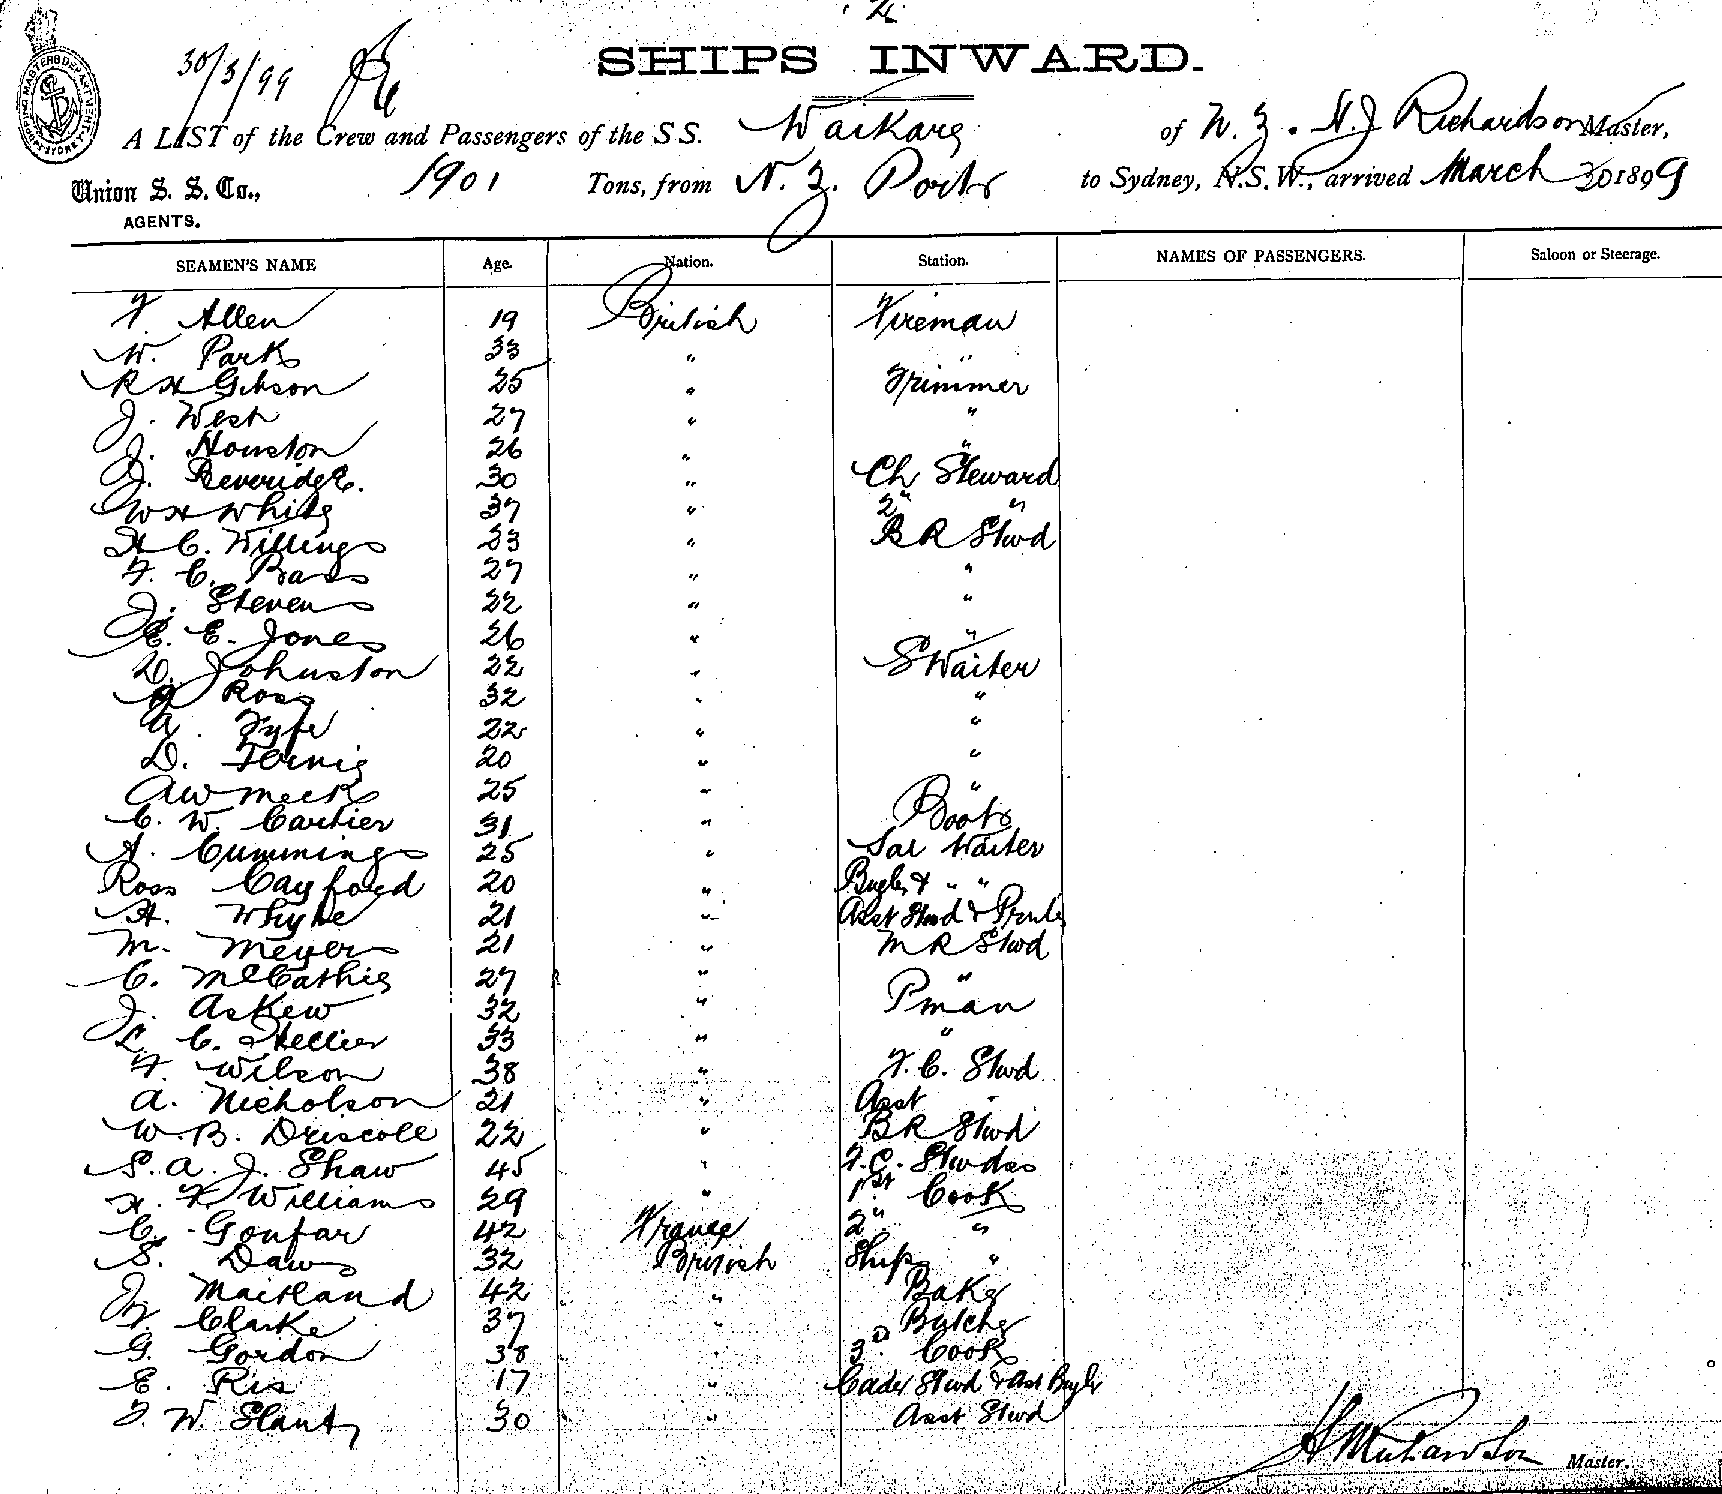 30/3/99
SHIPS INWARD.
A LIST of the Crew and Passengers of the S S. Waikare of N. Z. Richardson Master,
Union S. S. Co., 1901 Tons, from N. Z. Ports to Sydney, N.S.W., arrived March 30 1899
AGENTS.
SEAMEN'S NAME Age. Nation. Station. NAMES OF PASSENGERS. Saloon or Steerage.
F. Allen 19 British Fireman
W. Parks 33 " "
R H Gibson 25 " Trimmer
J. West 27 " "
J. Houston 26 " "
J. Beveridge. 30 " Ch Steward
W H White 37 " 2" "
H C. Willings 33 " B R Stwd
F. C. 27 " "
J. Stevens 22 " "
E. E. Jones 26 " "
D. Johnston 22 " S Waiter
Ross 32 " "
A. Fyfe 22 " "
D. 20 " "
A W Meek 25 " "
C. W. Cartier 31 " Boots
A. Cummings 25 " Sal Waiter
Ross Cayford 20 " Bugler & " "
H. Whyte 21 " Asst Stwd &
M. Meyers 21 " M R Stwd
C. McCathie 27 " "
J. Askew 32 " Pman
L. C. Hellier 33 " "
F. Wilson 38 " F. C. Stwd
A. Nicholson 21 " Asst "
W. B. Driscoll 22 " B R Stwd
S. A. J. Shaw 45 " F. C. Stwdss
H. F Williams 29 " 1st Cook
C. Goufar 42 France 2" "
S. Daws 32 British Ships "
J. Maitland 42 " Baker
F. Clarke 37 " Butcher
G. Gordon 38 " 3D Cook
E. Ris 17 " Cadet Stwd & Asst Bugler
F. W. 30 " Asst Stwd
Master.